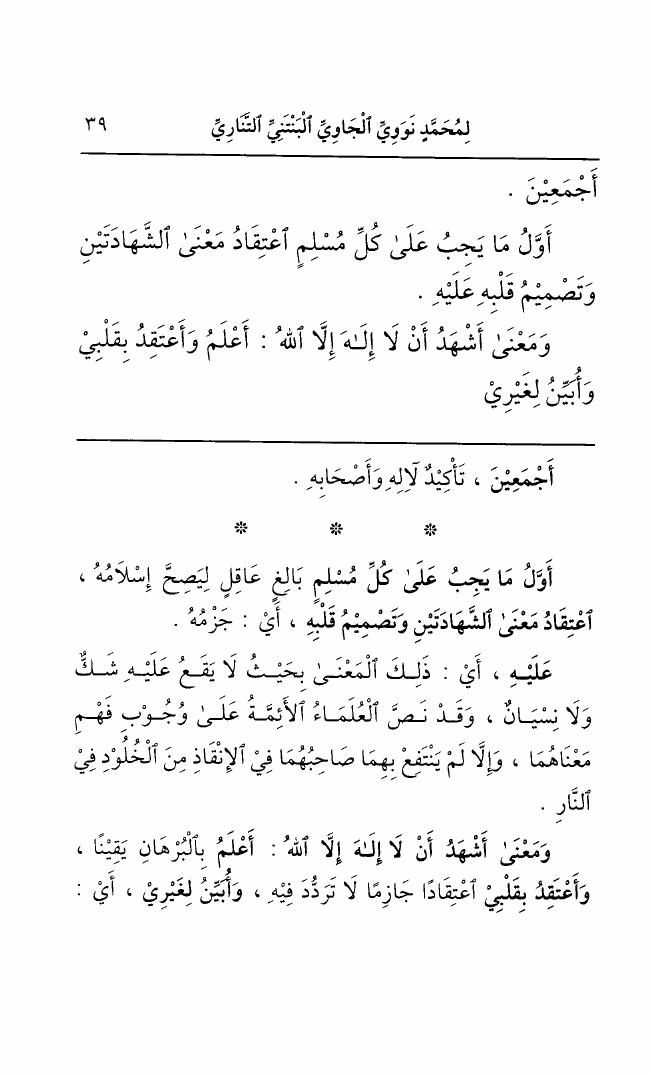 لِمُحَمَّدٍ نَوَوِيٍّ ٱلْجَاوِيِّ ٱلْبَنْتَنِيِّ ٱلتَّنَارِيِّ ٣٩
أَجْمَعِيْنَ .
أَوَّلُ مَا يَجِبُ عَلَىٰ كُلِّ مُسْلِمٍ ٱعْتِقَادُ مَعْنَىٰ ٱلشَّهَادَتَيْنِ
وَتَصْمِيْمُ قَلْبِهِ عَلَيْهِ .
وَمَعْنَىٰ أَشْهَدُ أَنْ لَا إِلَـٰهَ إِلَّا ٱللهُ : أَعْلَمُ وَأَعْتَقِدُ بِقَلْبِيْ
وَأُبَيِّنُ لِغَيْرِيْ
أَجْمَعِيْنَ ، تَأْكِيْدٌ لَآلِهِ وَأَصْحَابِهِ .
* * *
أَوَّلُ مَا يَجِبُ عَلَىٰ كُلِّ مُسْلِمٍ بَالِغٍ عَاقِلٍ لِيَصِحَّ إِسْلَامُهُ ،
ٱعْتِقَادُ مَعْنَىٰ ٱلشَّهَادَتَيْنِ وَتَصْمِيْمُ قَلْبِهِ ، أَيْ : جَزْمُهُ .
عَلَيْـهِ ، أَيْ : ذٰلِكَ ٱلْمَعْنَـىٰ بِحَيْـثُ لَا يَقَـعُ عَلَيْـهِ شَـكٌّ
وَلَا نِسْيَـانٌ ، وَقَـدْ نَـصَّ ٱلْعُلَمَـاءُ ٱلأَئِمَّـةُ عَلَـىٰ وُجُـوْبِ فَهْـمِ
مَعْنَاهُمَا ، وَإِلَّا لَمْ يَنْتَفِعْ بِهِمَا صَاحِبُهُمَا فِيْ ٱلإِنْقَاذِ مِنَ ٱلْخُلُوْدِ فِيْ
ٱلنَّارِ .
وَمَعْنَىٰ أَشْهَدُ أَنْ لَا إِلَـٰهَ إِلَّا ٱللهُ : أَعْلَمُ بِٱلْبُرْهَانِ يَقِيْنًا ،
وَأَعْتَقِدُ بِقَلْبِيْ ٱعْتِقَادًا جَازِمًا لَا تَرَدُّدَ فِيْهِ ، وَأُبَيِّنُ لِغَيْرِيْ ، أَيْ :